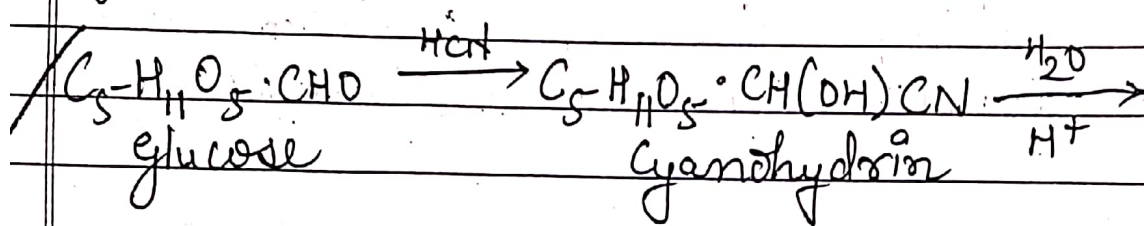 C₅H₁₁O₅·CHO —HCN→ C₅H₁₁O₅·CH(OH)·CN —H₂O/H⁺→
glucose Cyanohydrin